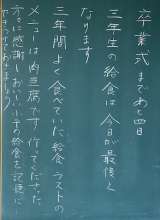 卒業式まであと四日
三年生の給食は今日が最後と
なります
三年間よく食べていた給食ラストの
メニューは肉豆腐です 作ってくださった
方々に感謝しおいしい小千の給食を記憶に